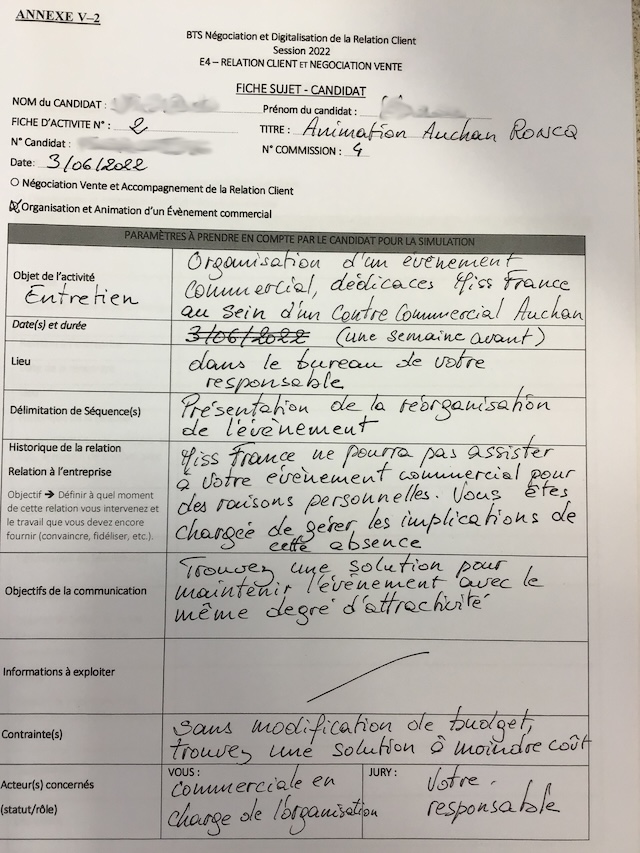 ANNEXE V-2
BTS Négociation et Digitalisation de la Relation Client
Session 2022
E4 – RELATION CLIENT ET NEGOCIATION VENTE
FICHE SUJET - CANDIDAT
NOM du CANDIDAT :
Prénom du candidat :
FICHE D'ACTIVITE N° : 2
TITRE : Animation Auchan RONCQ
N° Candidat :
N° COMMISSION : 4
Date: 3/06/2022
O Négociation Vente et Accompagnement de la Relation Client
Organisation et Animation d'un Évènement commercial
PARAMÈTRES À PRENDRE EN COMPTE PAR LE CANDIDAT POUR LA SIMULATION
Objet de l'activité
Entretien
Organisation d'un évènement
commercial, dédicaces Miss France
au sein d'un Centre Commercial Auchan
Date(s) et durée
3/06/2022 (une semaine avant)
Lieu
dans le bureau de votre
responsable
Délimitation de Séquence(s)
Présentation de la réorganisation
de l'évènement
Historique de la relation
Relation à l'entreprise
Objectif ➔ Définir à quel moment
de cette relation vous intervenez et
le travail que vous devez encore
fournir (convaincre, fidéliser, etc.).
Miss France ne pourra pas assister
à votre évènement commercial pour
des raisons personnelles. Vous êtes
chargée de gérer les implications de
cette absence
Objectifs de la communication
Trouvez une solution pour
maintenir l'évènement avec le
même degré d'attractivité
Informations à exploiter
Contrainte(s)
sans modification de budget,
trouvez une solution à moindre coût
Acteur(s) concernés
(statut/rôle)
VOUS :
Commerciale en
charge de l'organisation
JURY :
Votre
responsable